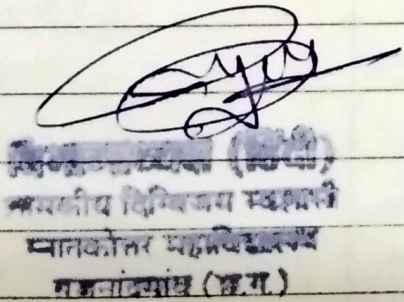 विभागाध्यक्ष (हिन्दी)
शासकीय दिग्विजय स्वशासी
स्नातकोत्तर महाविद्यालय
राजनांदगांव (छ.ग.)